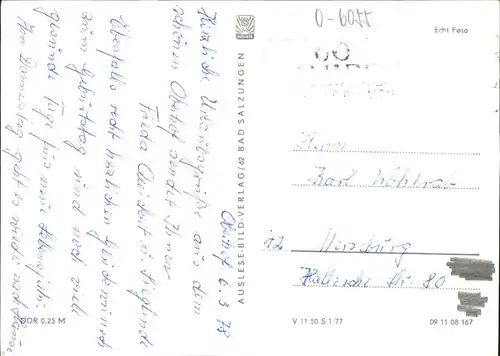 O-6055
Echt Foto
Oberhof 6.3.78
Herzliche Urlaubsgrüße aus dem
schönen Oberhof sendet Ihnen
Frieda Quidort u. Sieglinde
Ebenfalls recht herzlichen Glückwunsch
zum Geburtstag und noch viele
gesunde Tage für's neue Lebensjahr.
Am Donnerstag geht es wieder nach Hause
AUSLESE-BILD-VERLAG/62 BAD SALZUNGEN
Herrn
Karl
42 Merseburg
Hallische Str. 80
DDR 0,25 M
V 11 50 S 1/77
09 11 08 167